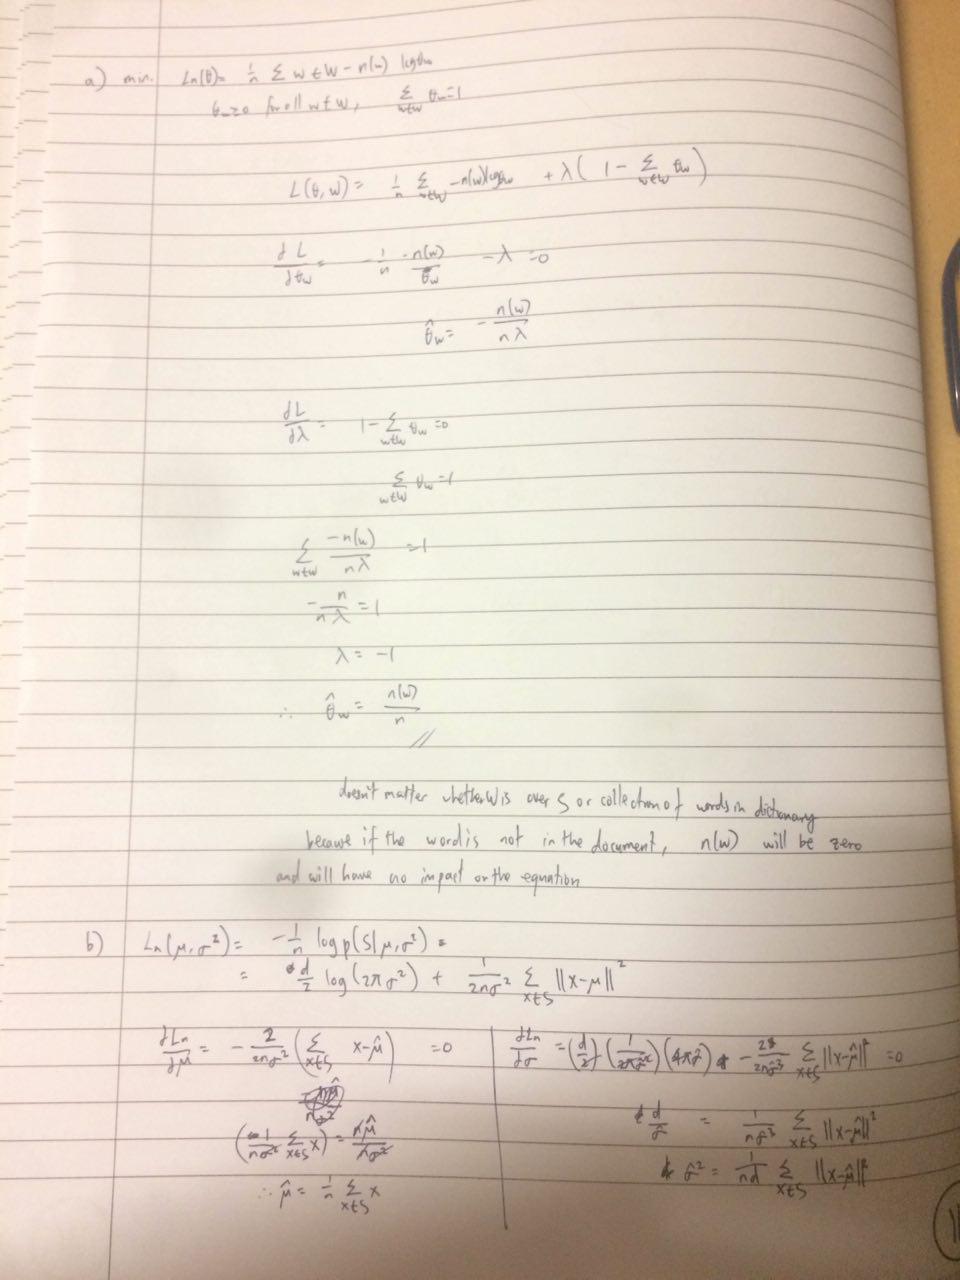 a) min. Ln(θ)= 1/n Σ w∈W - n(w) logθw
θw≥0 for all w∈W, Σ_{w∈W} θw=1
L(θ,w) = 1/n Σ_{w∈W} -n(w)logθw + λ( 1 - Σ_{w∈W} θw )
dL/dθw = -1/n · n(w)/θw - λ =0
θ̂w = - n(w)/nλ
dL/dλ = 1 - Σ_{w∈W} θw =0
Σ_{w∈W} θw =1
Σ_{w∈W} -n(w)/nλ =1
- n/nλ = 1
λ = -1
∴ θ̂w = n(w)/n //
doesn't matter whether W is over S or collection of words in dictionary
because if the word is not in the document, n(w) will be zero
and will have no impact on the equation
b) Ln(μ,σ²) = -1/n log p(S|μ,σ²) =
= d/2 log(2πσ²) + 1/2nσ² Σ_{x∈S} ||x-μ||²
dLn/dμ = - 2/2nσ² ( Σ_{x∈S} x-μ̂ ) =0
( 1/nσ² Σ_{x∈S} x ) = nμ̂/nσ²
∴ μ̂ = 1/n Σ_{x∈S} x
dLn/dσ = (d/2) (1/2πσ̂²) (4πσ̂) - 2/2nσ̂³ Σ_{x∈S} ||x-μ̂||² =0
d/σ̂ = 1/nσ̂³ Σ_{x∈S} ||x-μ̂||²
σ̂² = 1/nd Σ_{x∈S} ||x-μ̂||²